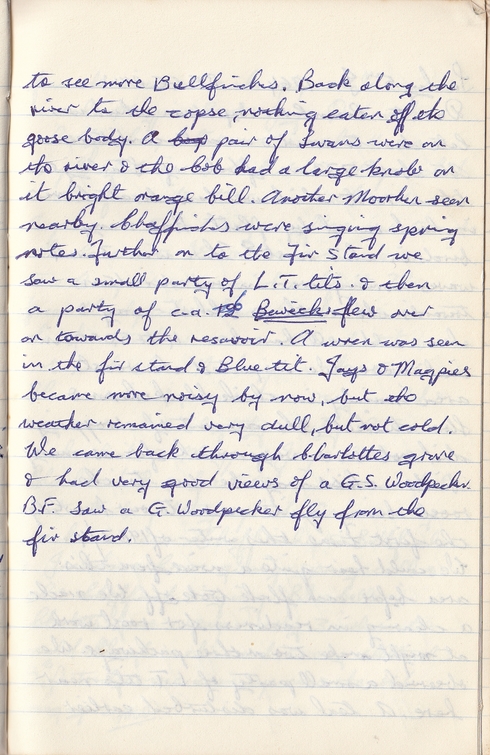 to see more Bullfinches. Back along the
river to the copse, nothing eaten off the
goose body. A pair of Swans were on
the river & the cob had a large knob on
it bright orange bill. Another Moorhen seen
nearby. Chaffinches were singing spring
notes. Further on to the Fir Stand we
saw a small party of L.T. tits. & then
a party of c.a. Bewicks flew over
on towards the resavoir. A wren was seen
in the fir stand & Blue tit. Jays & Magpies
became more noisy by now, but the
weather remained very dull, but not cold.
We came back through Charlottes grove
& had very good views of a G.S. Woodpecker.
B.F. saw a G. Woodpecker fly from the
fir stand.